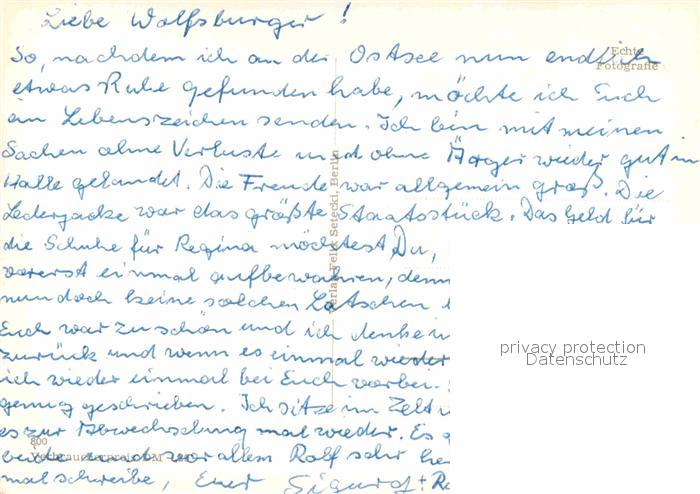 Liebe Wolfsburger!
So, nachdem ich an der Ostsee nun endlich
etwas Ruhe gefunden habe, möchte ich Euch
ein Lebenszeichen senden. Ich bin mit meinen
Sachen ohne Verluste und ohne Ärger wieder gut in
Halle gelandet. Die Freude war allgemein groß. Die
Lederjacke war das größte Staatsstück. Das Geld für
die Schuhe für Regina möchtest Du,
vorerst einmal aufbewahren, denn
nun doch keine solchen Latschen
Euch war zu schön und ich denke
zurück und wenn es einmal wieder
ich wieder einmal bei Euch vorbei.
genug geschrieben. Ich sitze im Zelt
es zur Abwechslung mal wieder. Es
beide und vor allem Rolf sehr
mal schreibe, Euer Sigurd +
Echte
Fotografie
Verlag Felix Setecki, Berlin
800
Verbraucherpreis DM
privacy protection
Datenschutz